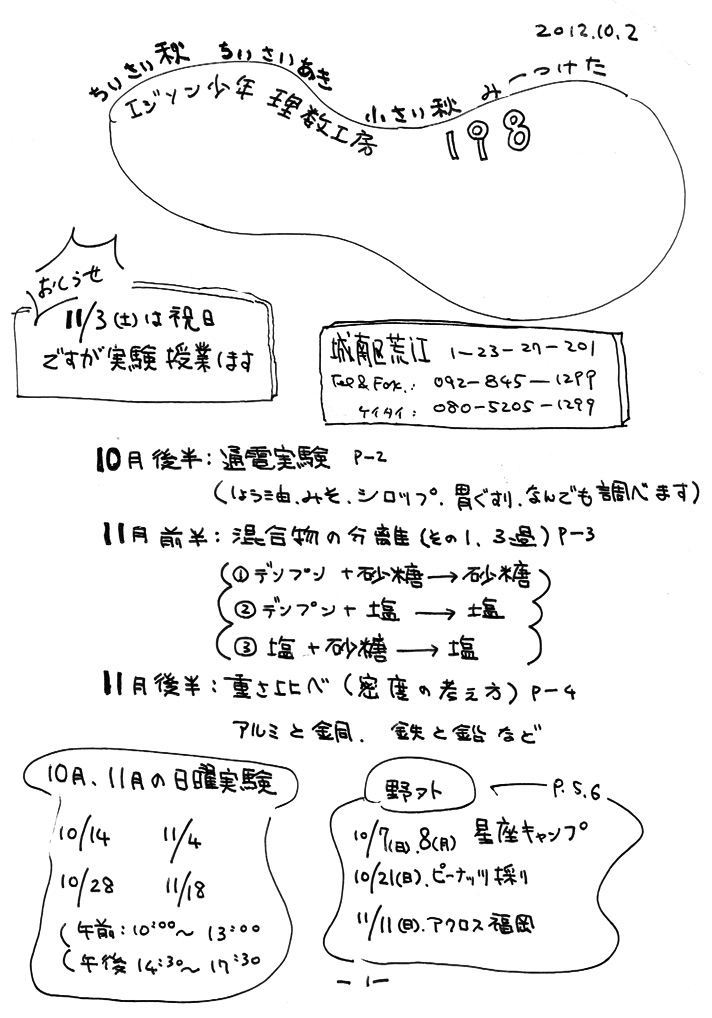 2012.10.2
ちいさい秋 ちいさいあき 小さい秋 みーつけた
エジソン少年 理数工房 198
おしらせ
11/3(土)は祝日
ですが実験授業します
城南区荒江 1-23-27-201
Tel & Fax.: 092-845-1299
ケイタイ: 080-5205-1299
10月後半:通電実験 P-2
(しょう油、みそ、シロップ、胃ぐすり、なんでも調べます)
11月前半:混合物の分離(その1、3過)P-3
①デンプン+砂糖→砂糖
②デンプン+塩→塩
③塩+砂糖→塩
11月後半:重さ比べ(密度の考え方)P-4
アルミと銅、鉄と鉛など
10月、11月の日曜実験
10/14 11/4
10/28 11/18
(午前:10:00~13:00
(午後14:30~17:30
野外 P.5.6
10/7(日).8(月) 星座キャンプ
10/21(日).ピーナッツ採り
11/11(日).アクロス福岡
-1-